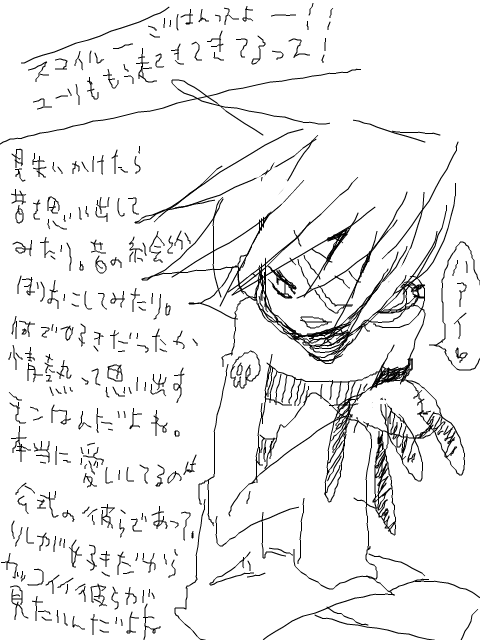 ごはんってよー!!
スコイルー
ユーリももう起きてきてるってェ!
見失いかけたら
昔を思い出して
みたり。昔の絵とか
ほりおこしてみたり。
何で好きだったか
情熱って思い出す
モンなんだよね。
本当に愛しいしてるのは
公式の彼らであって、
りしが好きだから
カッコイイ彼らが
見たいんだよね
ハァイ